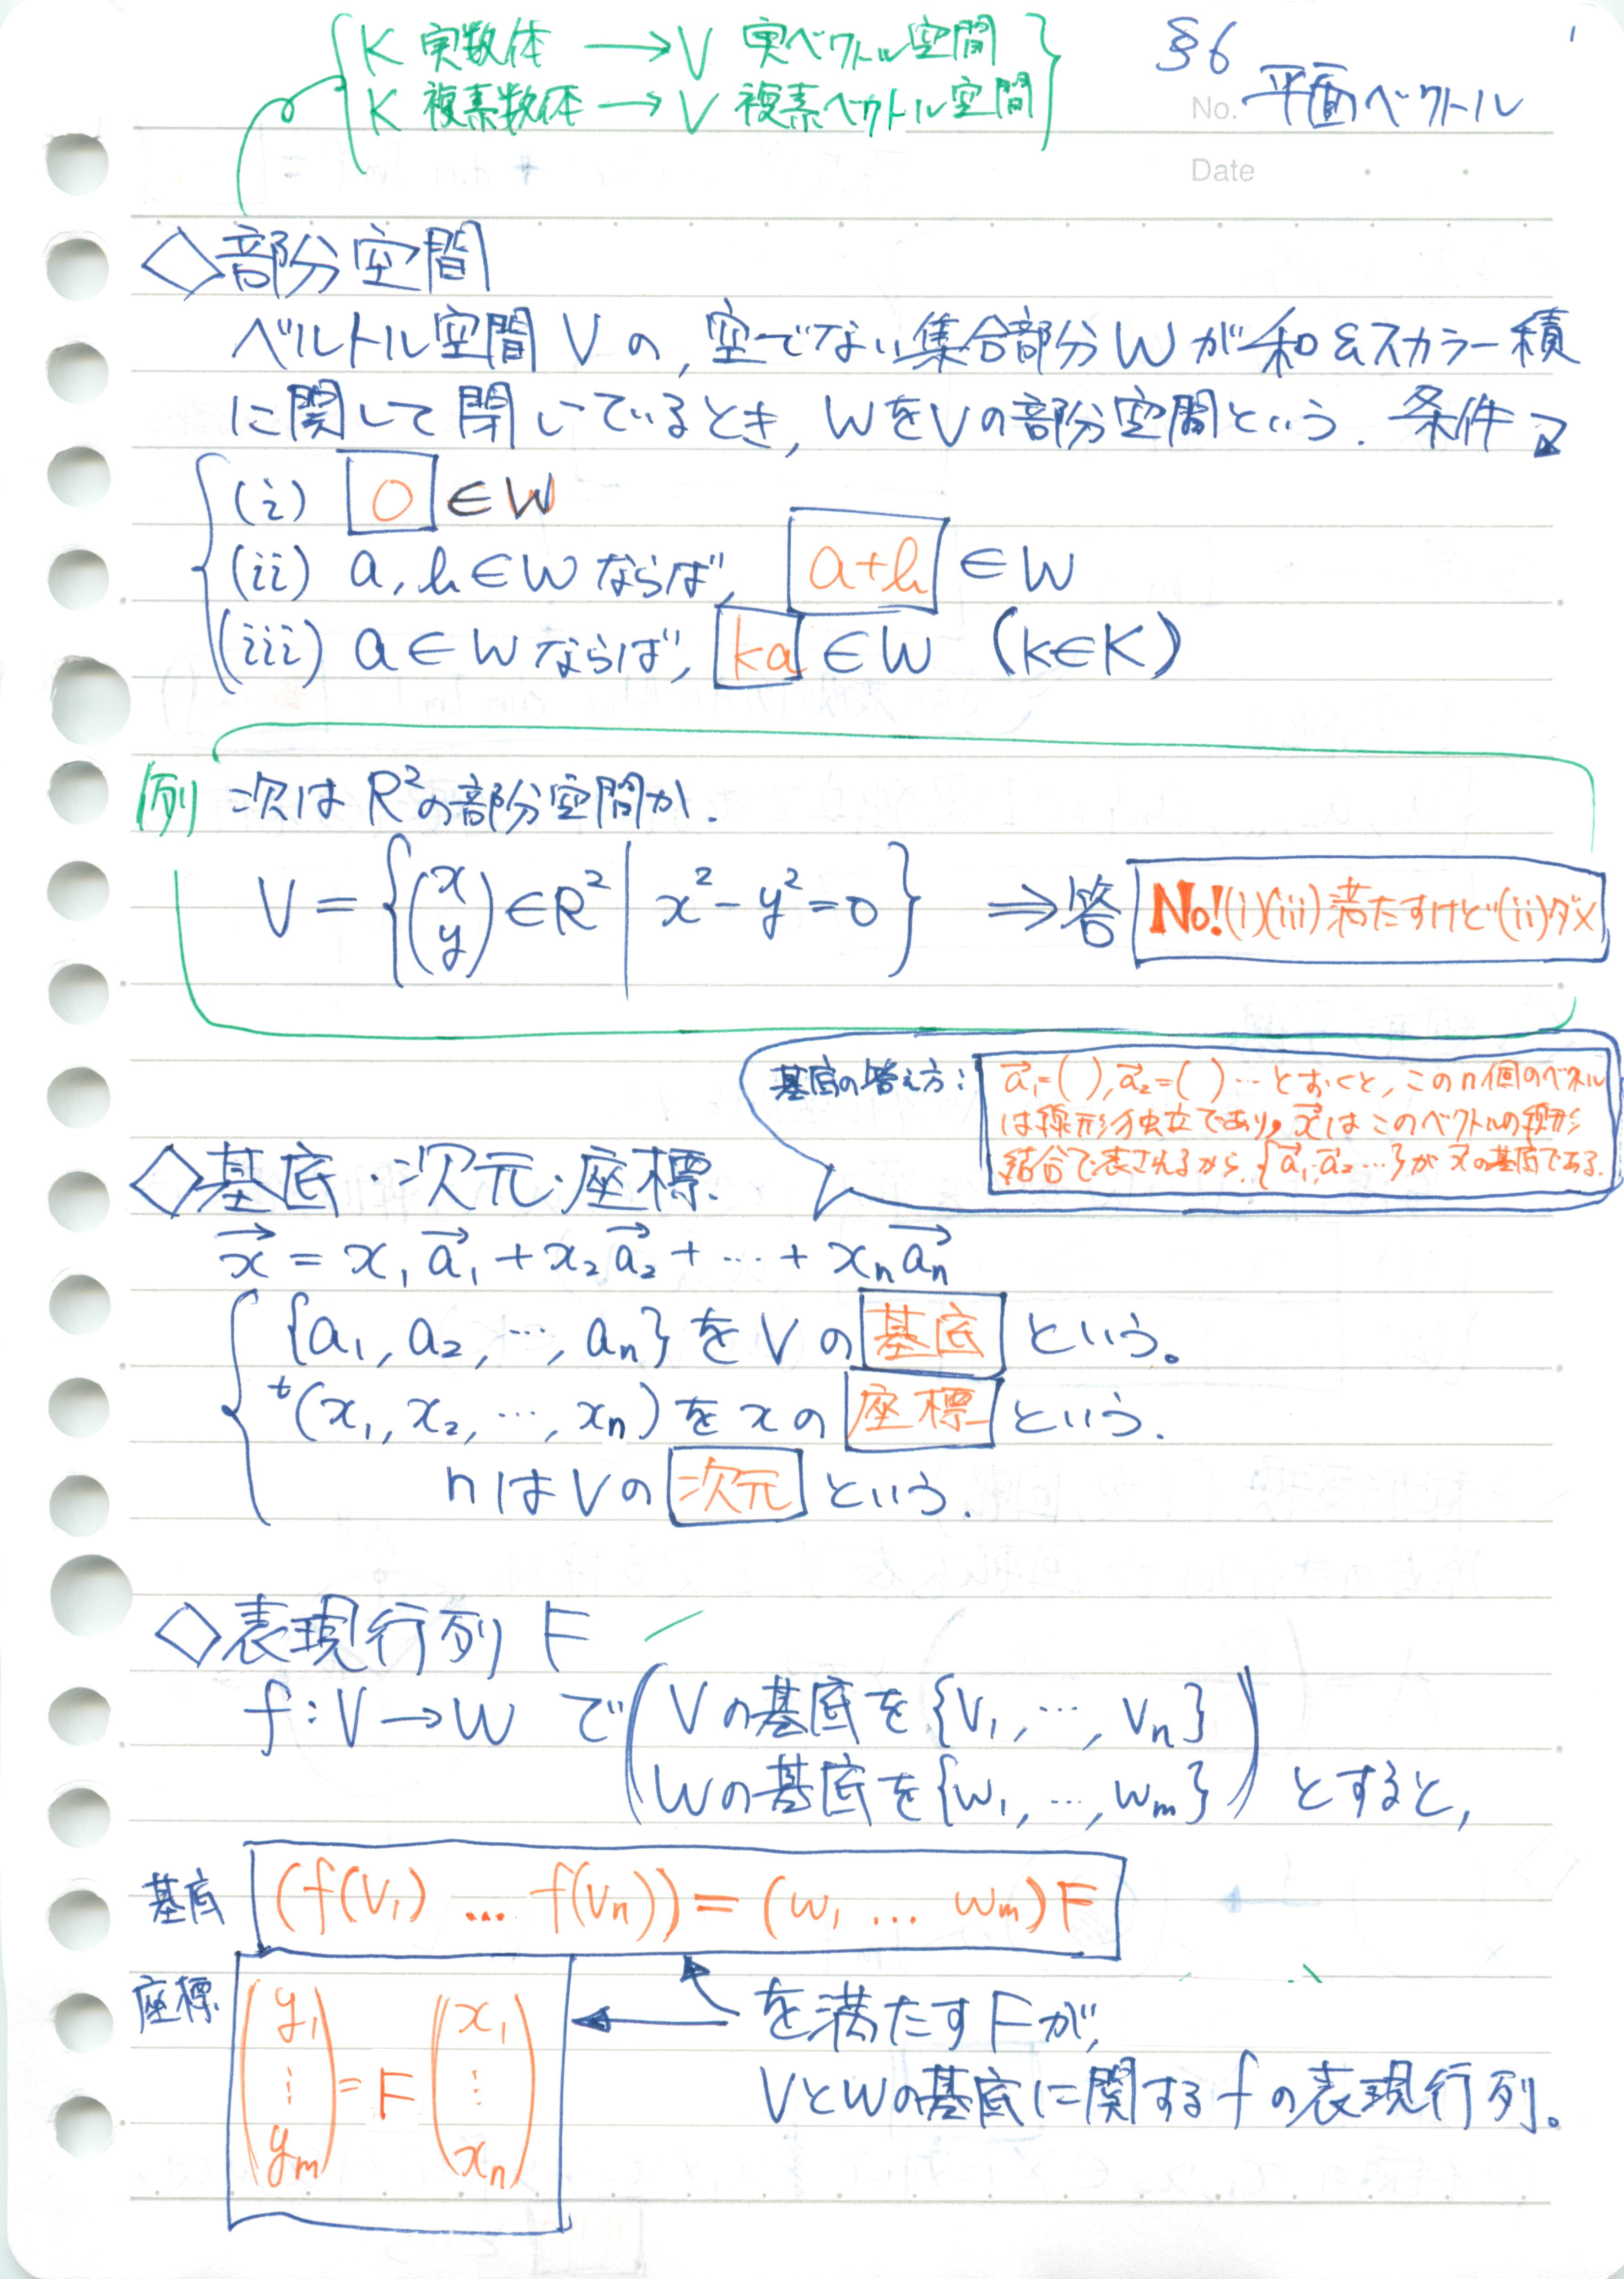 K 実数体 → V 実ベクトル空間
K 複素数体 → V 複素ベクトル空間
§6
平面ベクトル
1
No.
Date
◇部分空間
ベルトル空間Vの,空でない集合部分Wが和&スカラー積
に関して閉じているとき, WをVの部分空間という. 条件
(i) 0 ∈ W
(ii) a, b ∈ W ならば, a+b ∈ W
(iii) a ∈ W ならば, ka ∈ W (k∈K)
例 次は R²の部分空間か.
V = { (x y) ∈ R² | x² - y² = 0 } ⇒ 答 No! (i)(iii) 満たすけど (ii)ダメ
基底の答え方: a₁=( ), a₂=( ) … とおくと, このn個のベクトル
は線形独立であり, xはこのベクトルの線形
結合で表されるから, {a₁, a₂ …} が xの基底である.
◇基底・次元・座標
x = x₁a₁ + x₂a₂ + … + xₙaₙ
{a₁, a₂, …, aₙ} を V の 基底 という。
ᵗ(x₁, x₂, …, xₙ) を x の 座標 という.
n は V の 次元 という.
◇表現行列 F
f : V → W で (Vの基底を {v₁, …, vₙ}
Wの基底を {w₁, …, wₘ}) とすると,
基底 (f(v₁) … f(vₙ)) = (w₁ … wₘ) F
座標 (y₁ ⋮ yₘ) = F (x₁ ⋮ xₙ)
を満たす F が,
VとWの基底に関する f の表現行列。